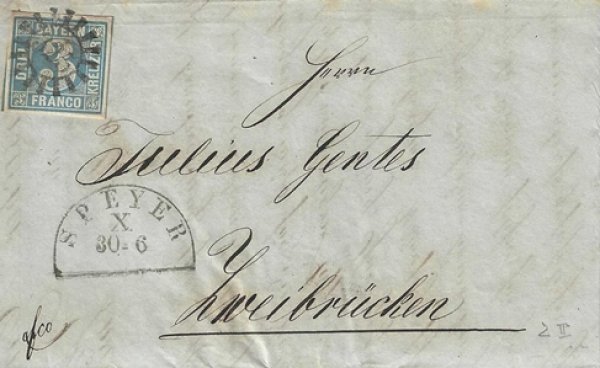 BAYERN
DREI 3 KREUZER
FRANCO
Herrn
Julius Gentes
SPEYER
X
30-6
Zweibrücken
fco
2 II